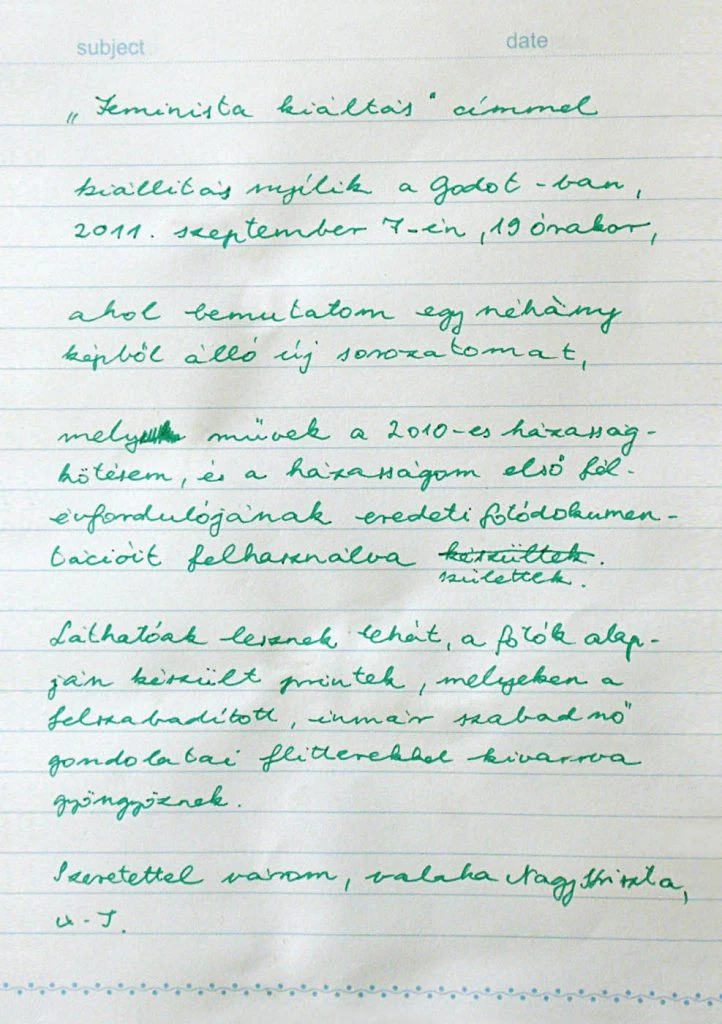 subject date
„Feminista kiáltás" címmel
kiállítás nyílik a Godot-ban,
2011. szeptember 7-én, 19 órakor,
ahol bemutatom egy néhány
képből álló új sorozatomat,
mely művek a 2010-es házasság-
kötésem, és a házasságom első fél-
évfordulójának eredeti fotódokumen-
tációit felhasználva készültek.
születtek.
Láthatóak lesznek tehát, a fotók alap-
ján készült printek, melyeken a
felszabadított, immár szabad nő
gondolatai flitterekkel kivarrva
gyöngyöznek.
Szeretettel várom, valaha Nagy Kriszta,
x-T.